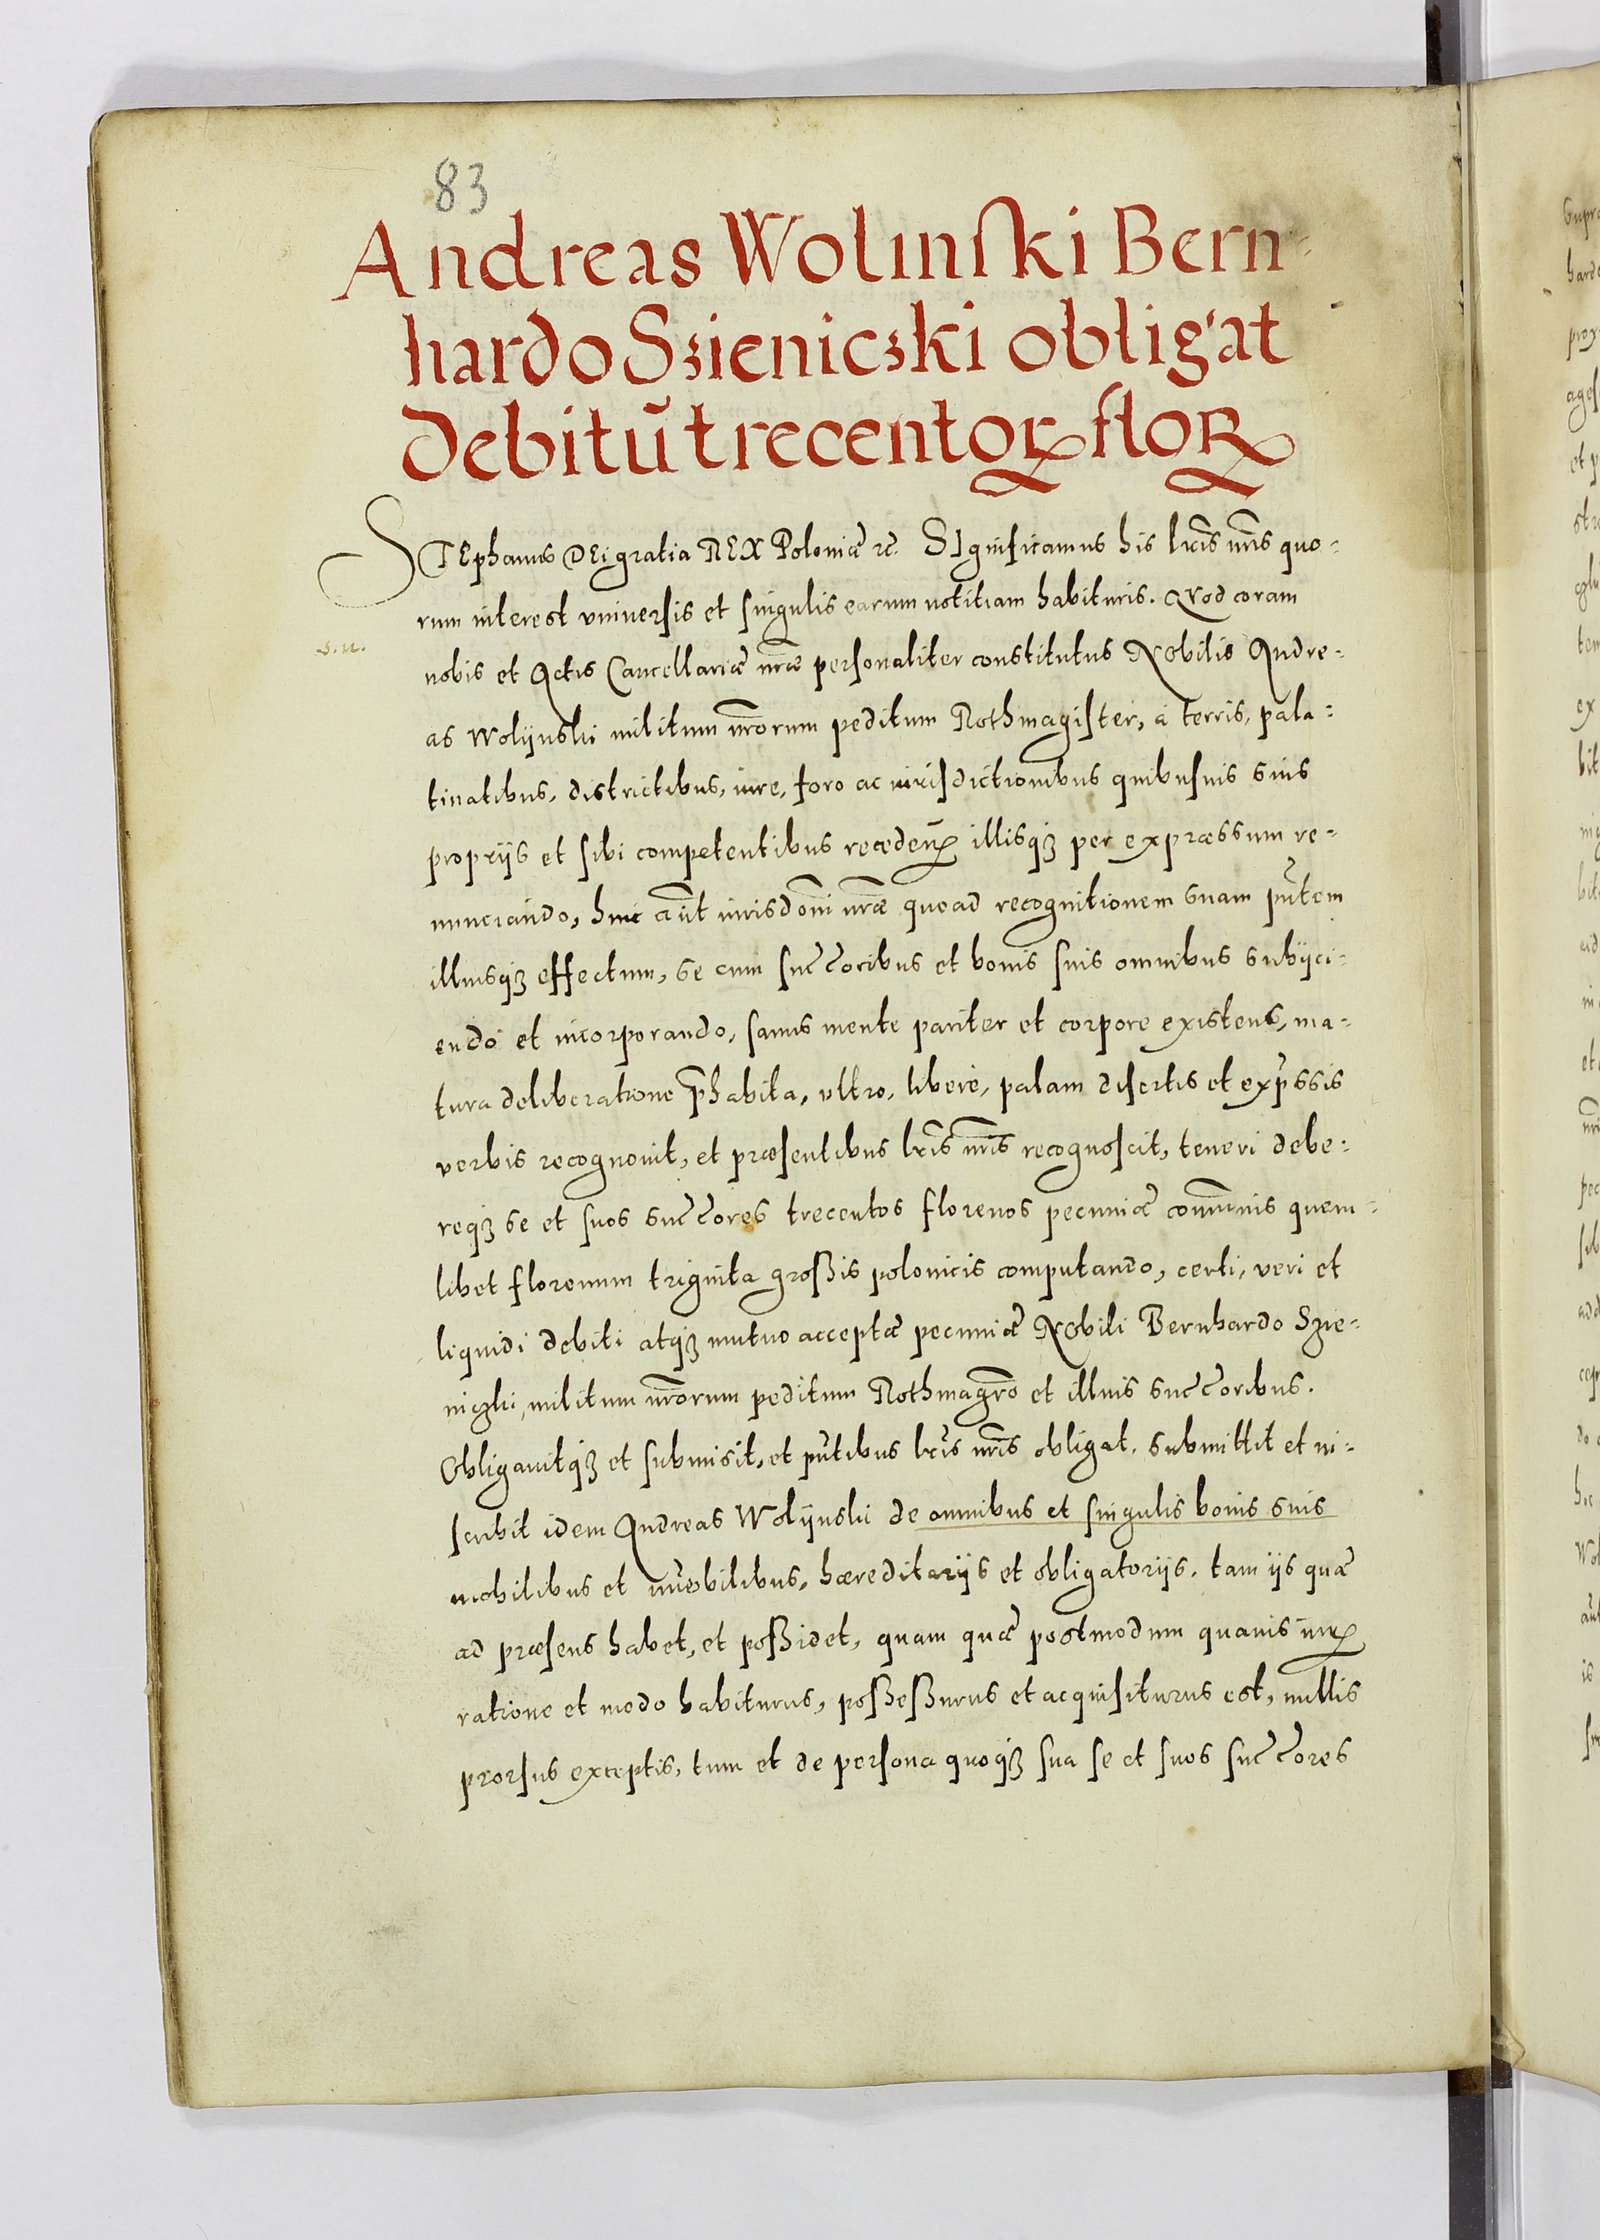 83
Andreas Wolinski Bern-
hardo Szieniczki obligat
debitū trecentoꝝ floꝝ
STEphanus DEi gratia REX Poloniæ ꝛc. SIgnificamus his lr̃is nr̃is quo-
rum interest vniuersis et singulis earum notitiam habituris. Qvod coram
s.n.
nobis et Actis Cancellariæ nr̃æ personaliter constitutus NObilis Andre-
as Wolijnski militum nr̃orum peditum Rothmagister, á terris, pala-
tinatibus, districtibus, iure, foro ac iurisdictionibus quibusuis suis
proprijs et sibi competentibus recedeñ illisqꝫ per expræssum re-
nunciando, huic aũt iurisdõni nr̃æ quoad recognitionem suam pñtem
illiusqꝫ effectum, se cum succ̃oribus et bonis suis omnibus subijci-
endo et incorporando, sanus mente pariter et corpore existens, ma-
tura deliberatione p̃habita, vltro, liberè, palam disertis et exp̃ssis
verbis recognouit, et præsentibus lr̃is nr̃is recognoscit, teneri debe-
reqꝫ se et suos succ̃ores trecentos florenos pecuniæ com̃unis quem-
libet florenum triginta großis polonicis computando, certi, veri et
liquidi debiti atqꝫ mutuo acceptæ pecuniæ NObili Bernhardo Szie-
niczki, militum nr̃orum peditum Rothmagr̃o et illius succ̃oribus.
Obligauitqꝫ et submisit, et pñtibus lr̃is nr̃is obligat, submittit et in-
scribit idem Andreas Wolijnski de omnibus et singulis bonis suis
mobilibus et im̃obilibus, hæreditarijs et obligatorijs, tam ijs quæ
ad præsens habet, et poßidet, quam quæ postmodum quauis iur̃
ratione et modo habiturus, poßeßurus et acquisiturus est, nullis
prorsus exceptis, tum et de persona quoqꝫ sua se et suos succ̃ores